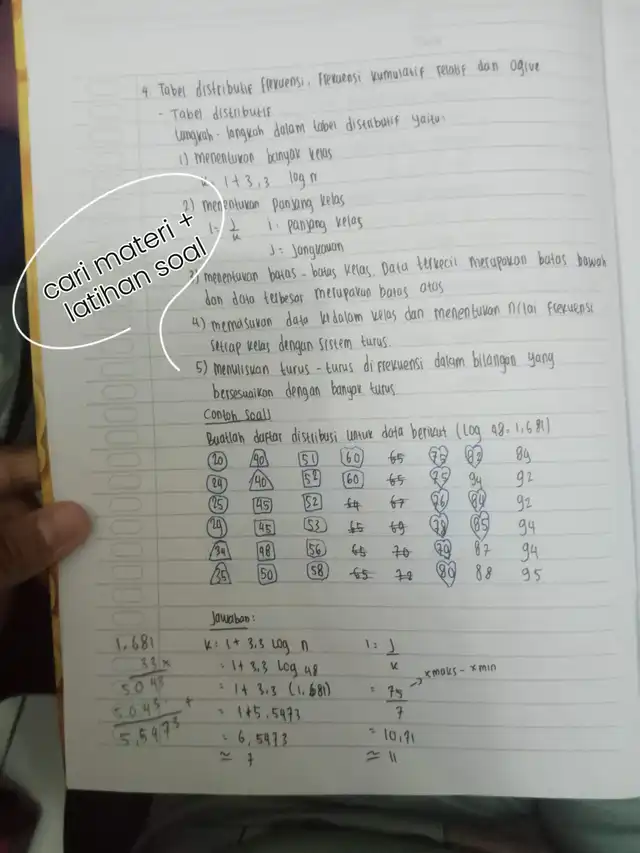 4. Tabel distributif frekuensi, Frekuensi kumulatif relatif dan ogive
- Tabel distributif
Langkah-langkah dalam tabel distributif yaitu:
1) menentukan banyak kelas
k = 1 + 3,3 log n
2) menentukan panjang kelas
i = J/k i = panjang kelas
J = Jangkauan
cari materi +
latihan soal
3) menentukan batas-batas kelas. Data terkecil merupakan batas bawah
dan data terbesar merupakan batas atas
4) memasukan data kedalam kelas dan menentukan nilai Frekuensi
setiap kelas dengan sistem turus.
5) menuliskan turus-turus di frekuensi dalam bilangan yang
bersesuaikan dengan banyak turus
Contoh soal
Buatlah daftar distribusi untuk data berikut (Log 48 = 1,681)
20 40 51 60 65 75 83 89
24 40 52 60 65 75 84 92
25 45 52 64 67 76 84 92
29 45 53 65 69 78 85 94
34 48 56 65 70 79 87 94
35 50 58 65 70 80 88 95
Jawaban:
1.681
33 x
5043
5043 +
5,5473
k = 1 + 3.3 Log n i = J/k
= 1 + 3.3 Log 48
= 1 + 3.3 (1.681) = 75/7 → xmaks - xmin
= 1 + 5,5473
= 6,5473 = 10,71
≈ 7 ≈ 11